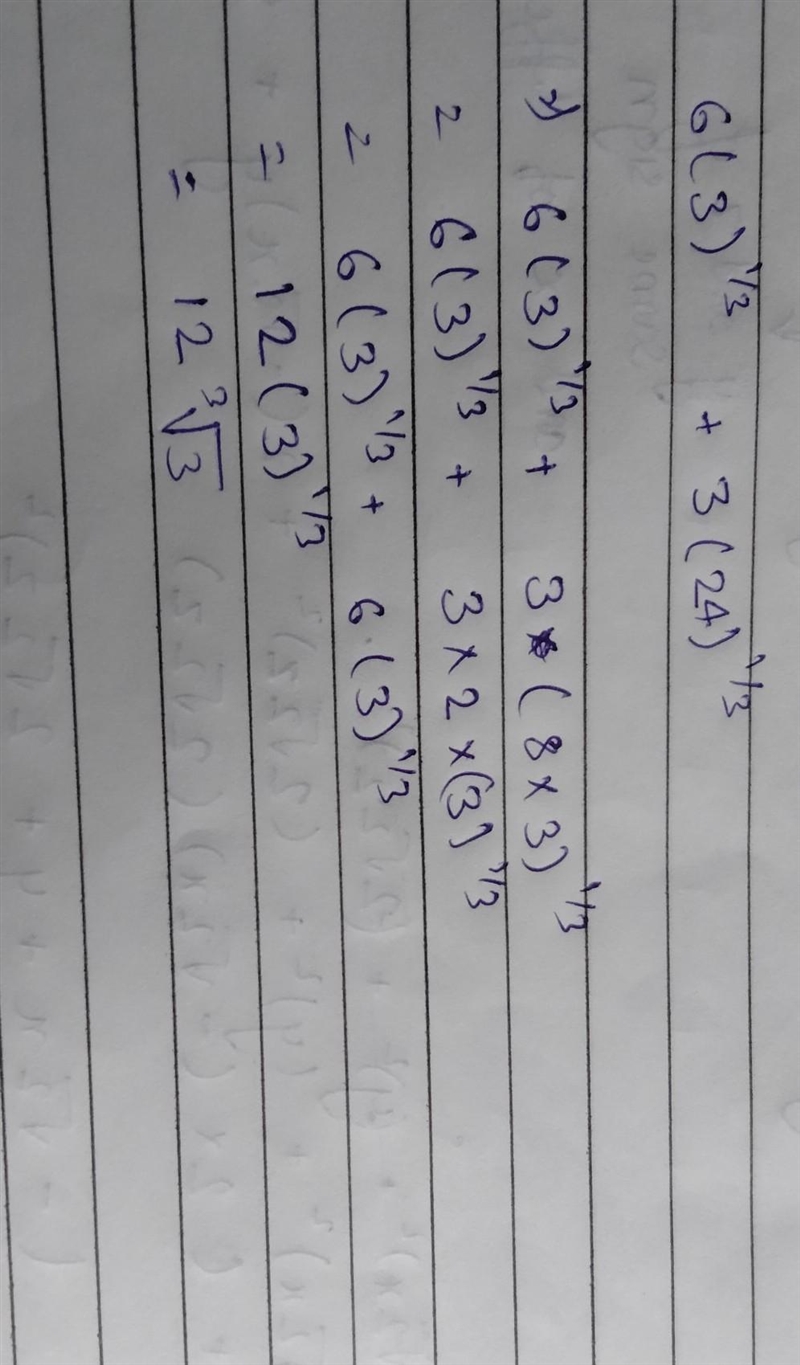 6(3)^1/3 + 3(24)^1/3
⇒ 6(3)^1/3 + 3 (8×3)^1/3
= 6(3)^1/3 + 3×2×(3)^1/3
= 6(3)^1/3 + 6(3)^1/3
= 12(3)^1/3
= 12 ∛3